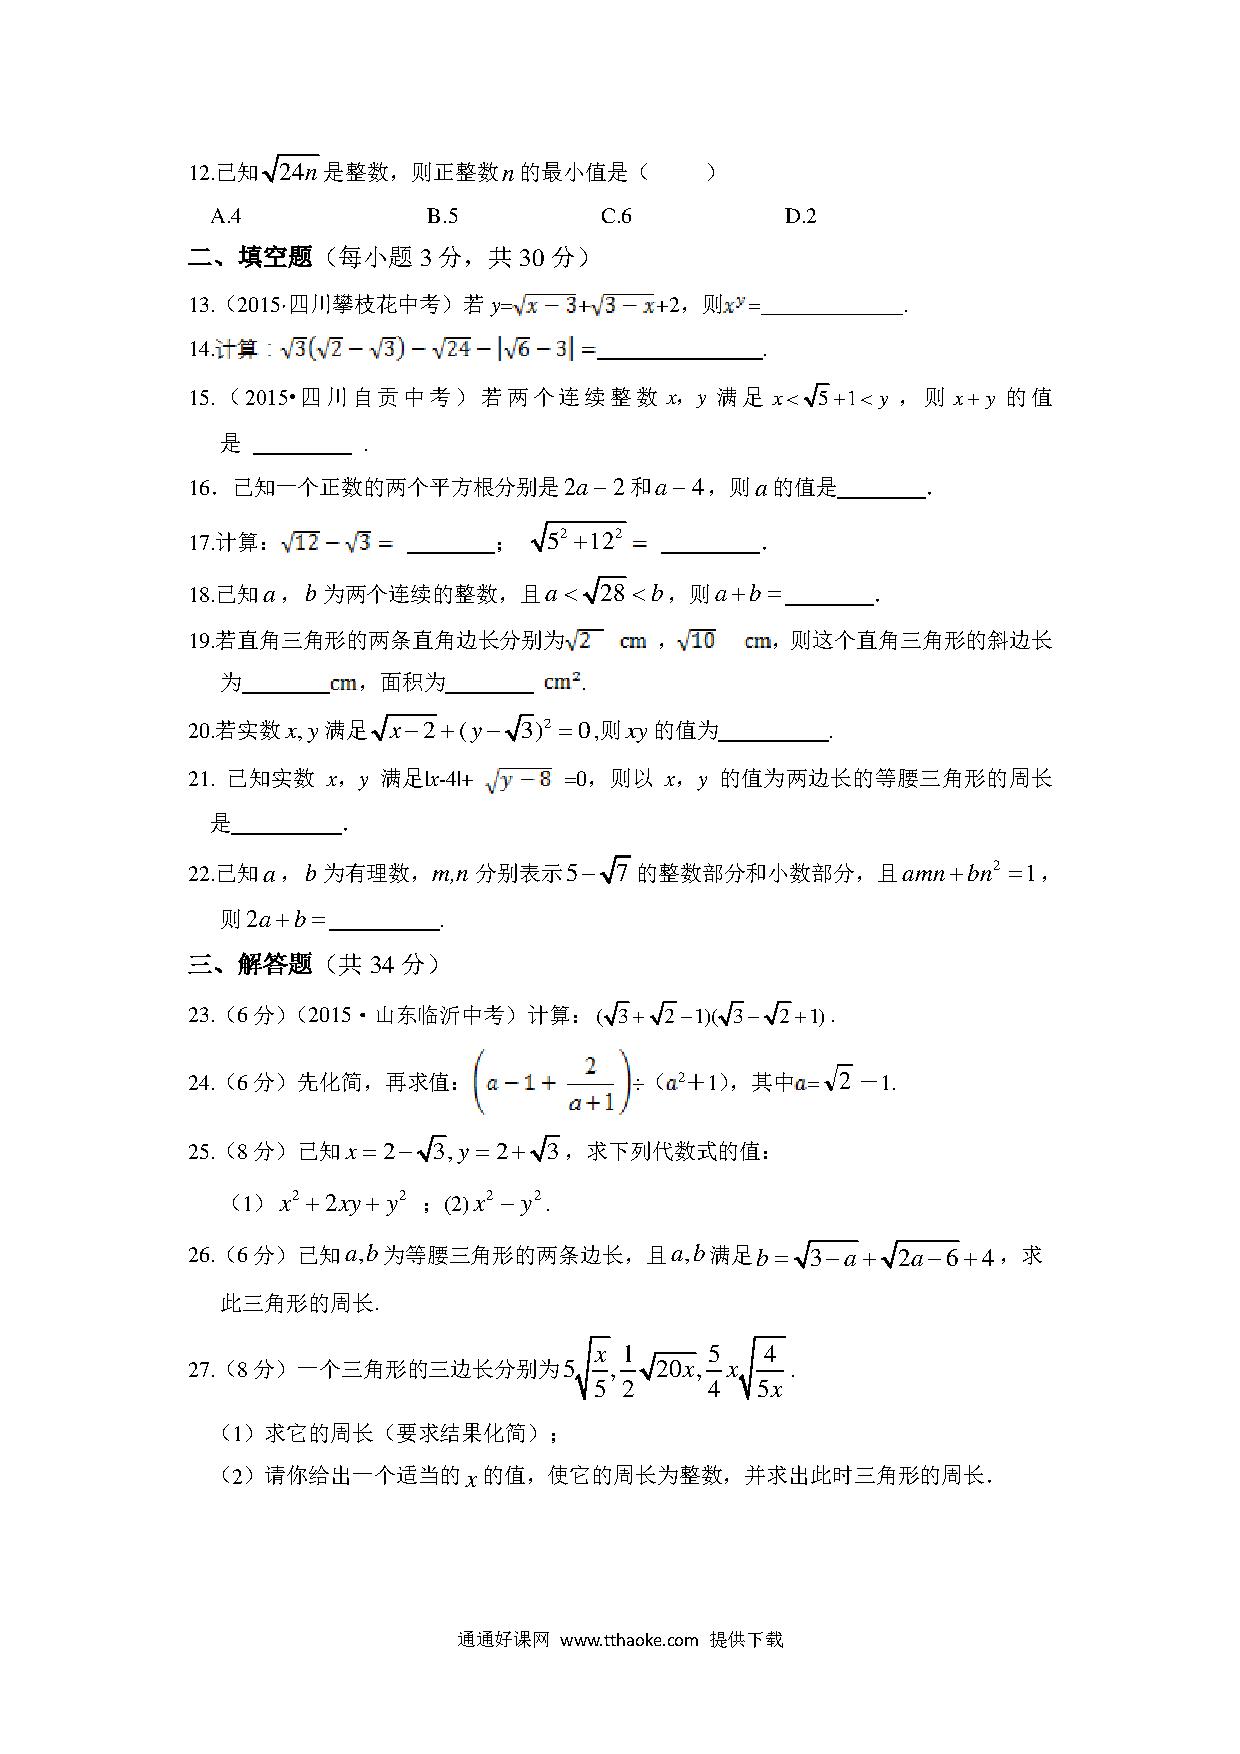 12.已知 √24n 是整数，则正整数 n 的最小值是（  ）
A.4 B.5 C.6 D.2
二、填空题（每小题 3 分，共 30 分）
13.（2015·四川攀枝花中考）若 y=√(x−3)+√(3−x)+2，则x^y=_____________.
14.计算：√3(√2−√3)−√24−|√6−3|=_______________.
15.（2015•四川自贡中考）若两个连续整数 x，y 满足 x<√5+1<y ，则 x+y 的值
是 _________ .
16．已知一个正数的两个平方根分别是2a−2和a−4，则a的值是________．
17.计算：√12−√3= ________； √(5²+12²)= _________．
18.已知a，b为两个连续的整数，且a<√28<b，则a+b=________．
19.若直角三角形的两条直角边长分别为√2 cm ，√10 cm，则这个直角三角形的斜边长
为________cm，面积为________ cm².
20.若实数x, y满足 √(x−2)+(y−√3)²=0,则xy的值为__________.
21. 已知实数 x，y 满足|x-4|+ √(y−8) =0，则以 x，y 的值为两边长的等腰三角形的周长
是__________．
22.已知a，b为有理数，m,n分别表示5−√7的整数部分和小数部分，且amn+bn²=1，
则2a+b=__________.
三、解答题（共 34 分）
23.（6 分）（2015·山东临沂中考）计算：(√3+√2−1)(√3−√2+1).
24.（6 分）先化简，再求值：(a−1+2/(a+1))÷（a²＋1），其中a=√2－1.
25.（8 分）已知x=2−√3, y=2+√3，求下列代数式的值：
（1）x²+2xy+y² ；(2)x²−y².
26.（6 分）已知a,b为等腰三角形的两条边长，且a,b满足b=√(3−a)+√(2a−6)+4，求
此三角形的周长.
27.（8 分）一个三角形的三边长分别为5√(x/5), 1/2 √20x, 5/4 x√(4/5x).
（1）求它的周长（要求结果化简）；
（2）请你给出一个适当的x的值，使它的周长为整数，并求出此时三角形的周长．
通通好课网 www.tthaoke.com 提供下载